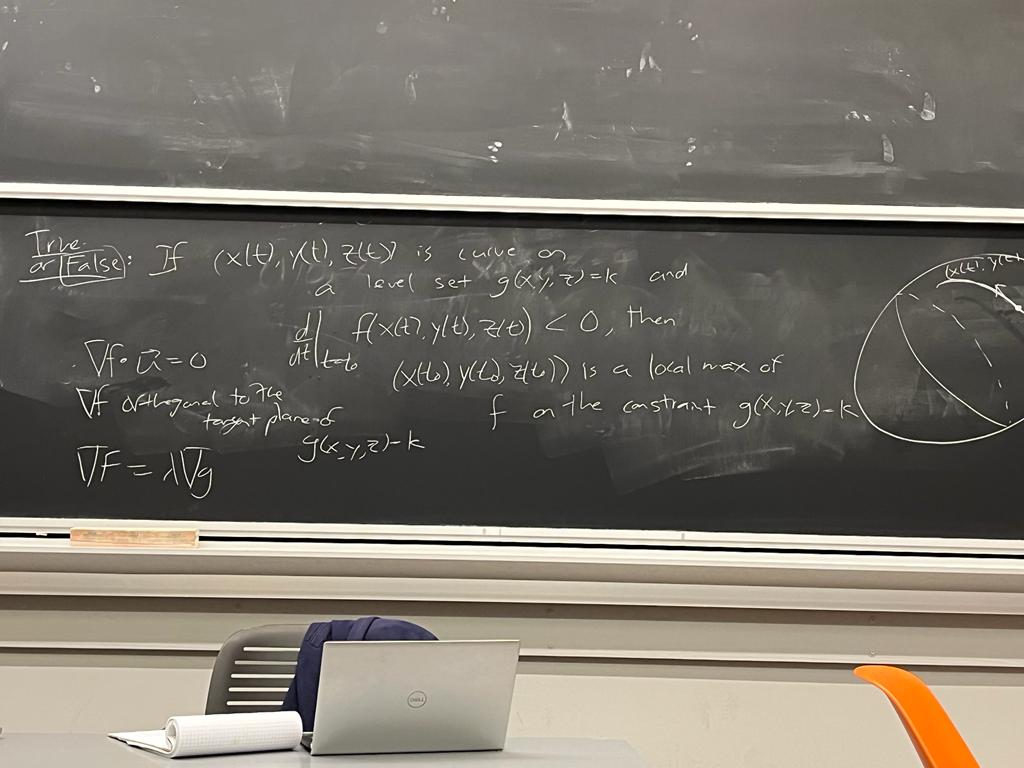 True
or False: If (x(t), y(t), z(t)) is curve on
a level set g(x,y,z)=k and
d/dt|t=t₀ f(x(t), y(t), z(t)) < 0, then
(x(t₀), y(t₀), z(t₀)) is a local max of
f on the constraint g(x,y,z)=k
∇f · u⃗ = 0
∇f orthogonal to the
tangent plane of
g(x,y,z)=k
∇F = λ∇g
(x(t), y(t)
DELL